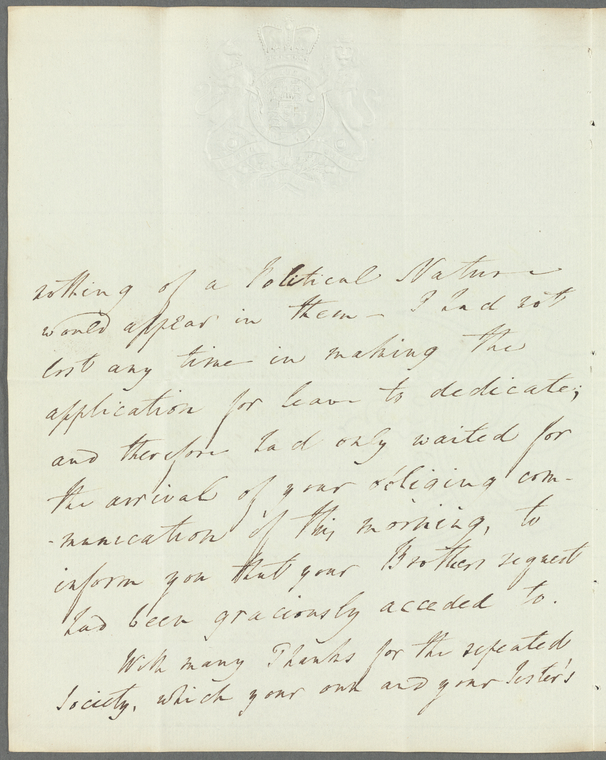 nothing of a Political Nature
would appear in them – I had not
lost any time in making the
application for leave to dedicate;
and therefore had only waited for
the arrival of your obliging com-
-munication of this morning, to
inform you that your Brothers request
had been graciously acceded to.
With many Thanks for the repeated
Society, which your own and your Sister's